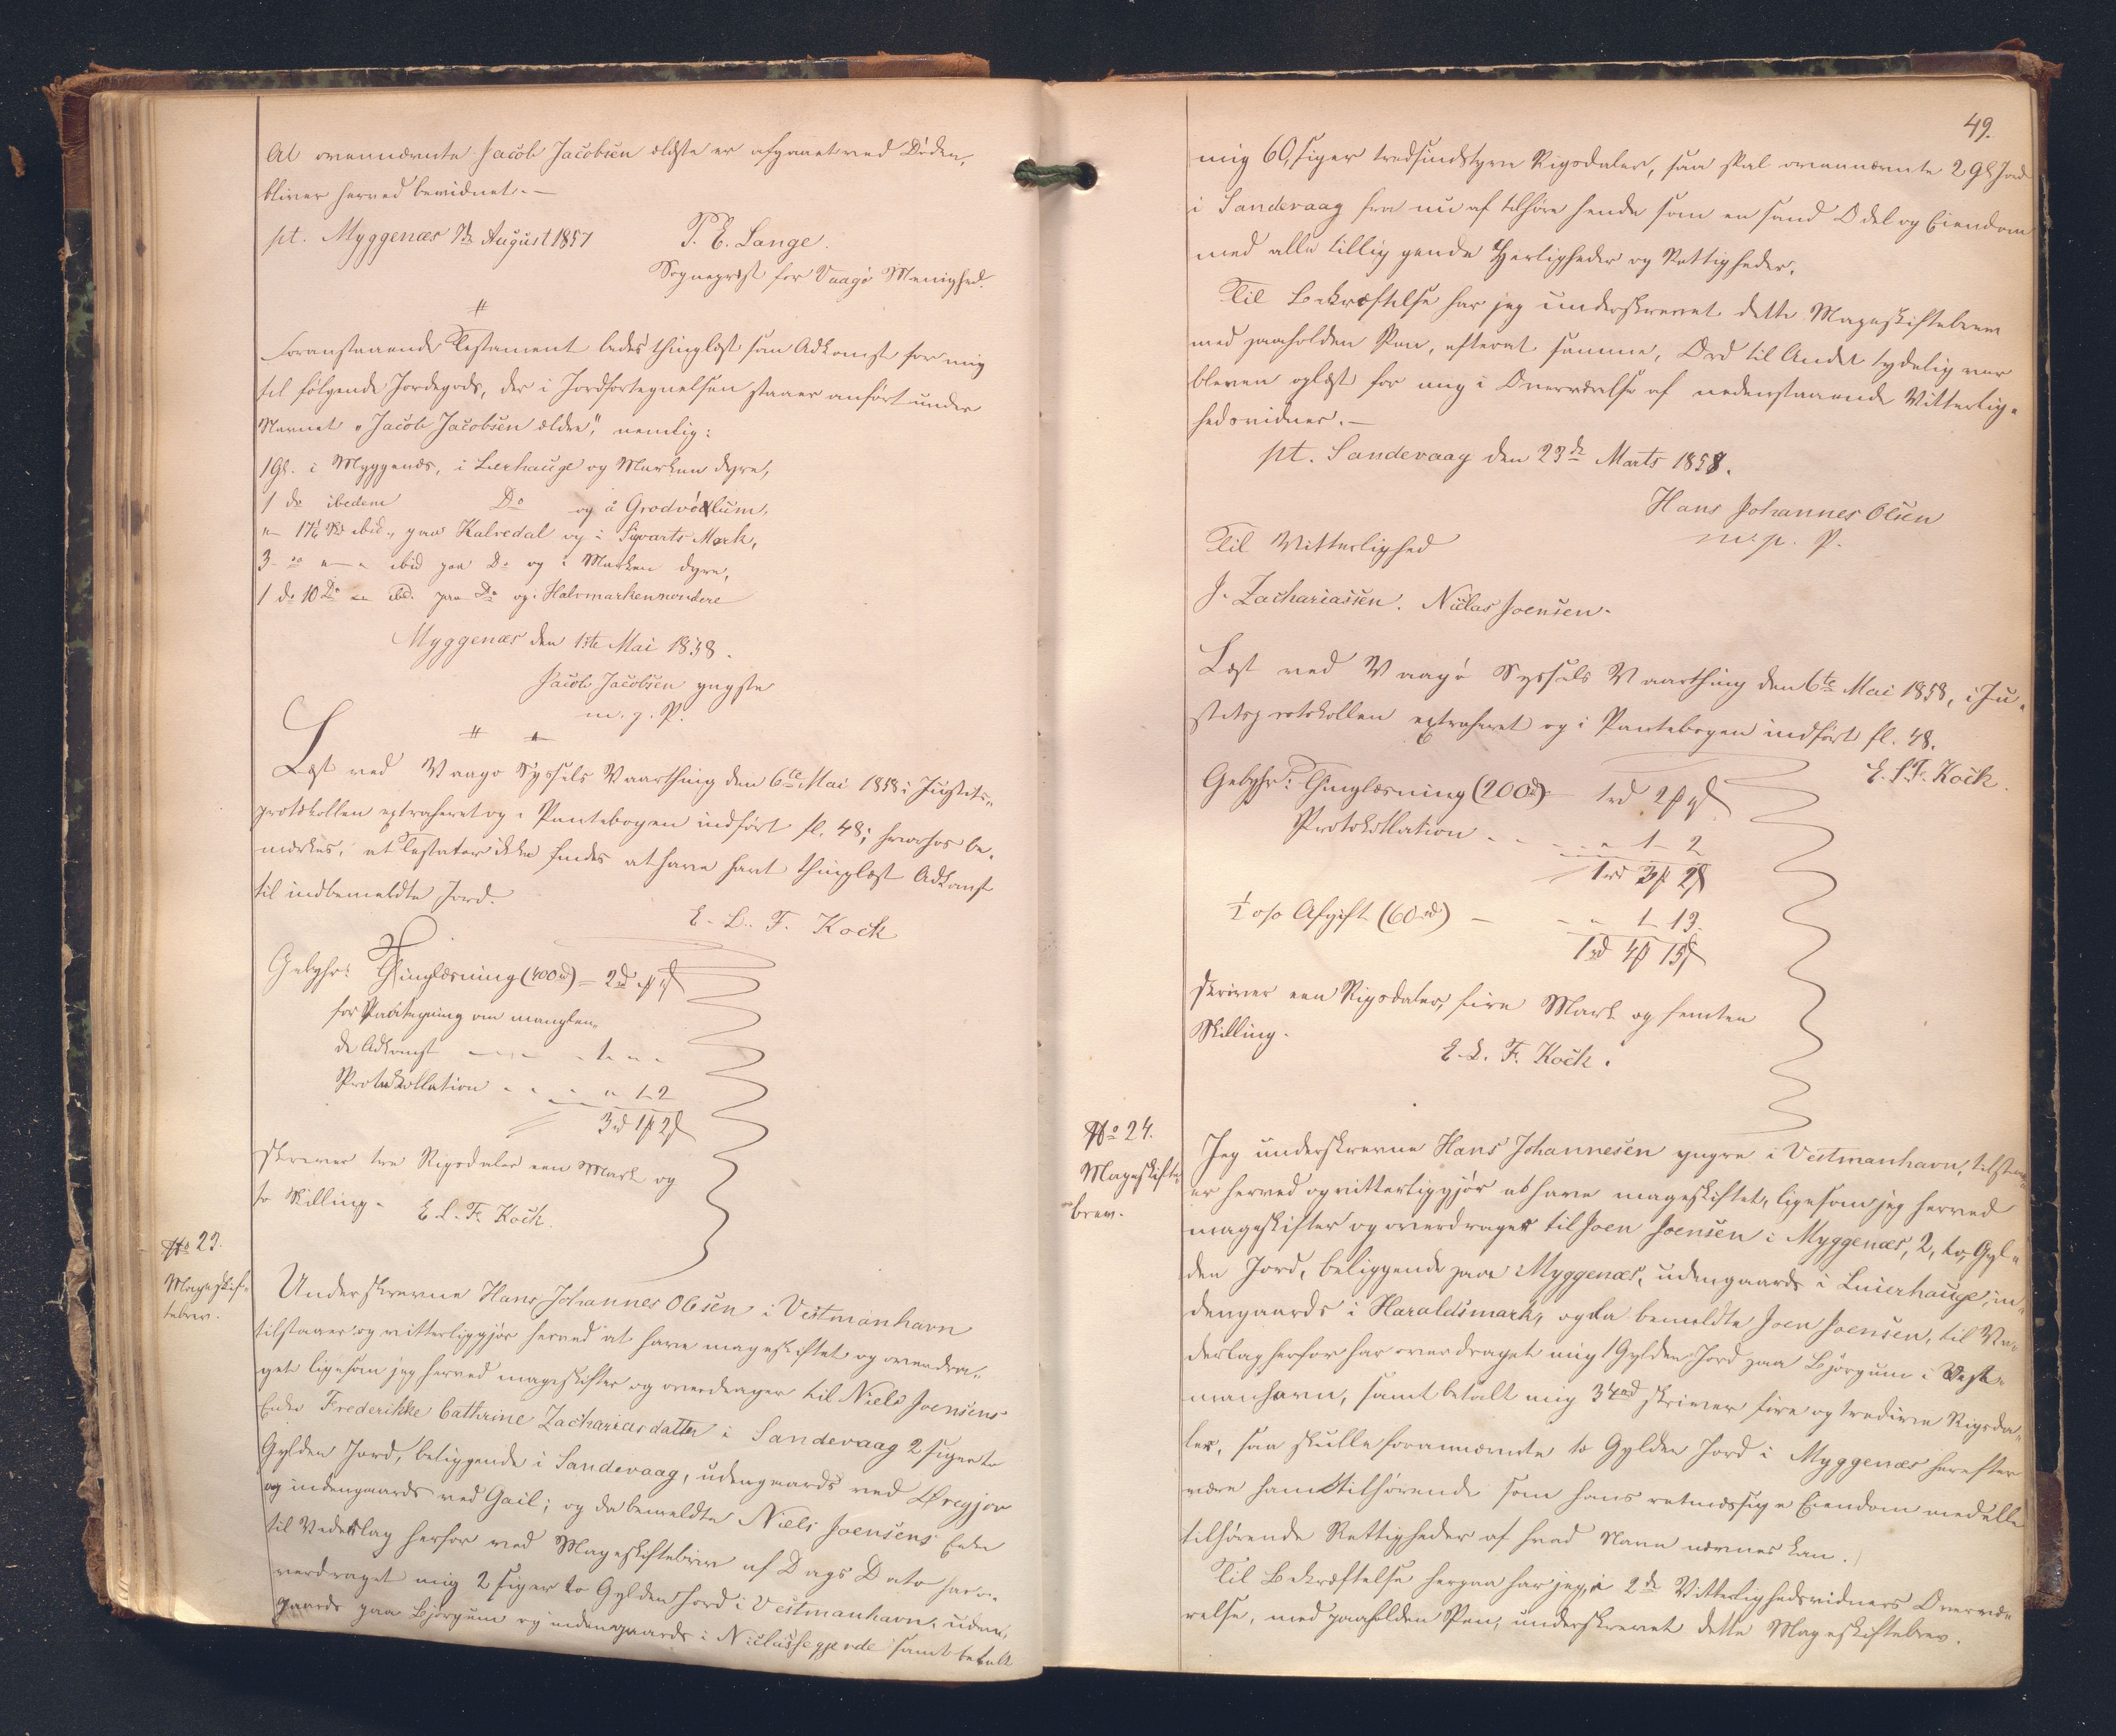 At ovennævnte Jacob Jacobsen ældste er afgaaet ved Døden,
bliver herved bevidnet. —
pt. Myggenæs 7de August 1857
P. E. Lange.
Sognepræst for Vaagø Menighed.
Foranstaaende Testament bedes thinglæst som Adkomst for mig
til følgende Jordegods, der i Jordfortegnelsen staaer anført under
Navnet "Jacob Jacobsen ældre", nemlig:
1 Gl. i Myggenæs, i Leerhauge og Marken dyre,
1 do ibidem Do og á Grodvöllum,
" 17½ Sk ibid., paa Kalvedal og i Sigvarts Mark,
3 do " — " ibid paa Do og i Marken dyre,
1 do 10 Do — ibid. paa Do og i Halvmarkennondere
Myggenæs den 1ste Mai 1858.
Jacob Jacobsen yngste
m. p. P.
Læst ved Vaagø Syssels Vaarthing den 6te Mai 1858 i Justits-
protokollen extraheret og i Pantebogen indført fl. 48; hvorhos be-
mærkes, at Testator ikke findes at have havt thinglæst Adkomst
til indbemeldte Jord.
E. L. F. Kock
Gebyhr: Thinglæsning (400rd) — 2rd " ß
for Paategning om manglen-
de Adkomst — — 1 " "
Protokollation - - " 1 2
3rd 1 2ß
skriver tre Rigsdaler een Mark og
to Skilling. E. L. F. Kock.
No 23.
Mageskif-
tebrev.
Underskrevne Hans Johannes Olsen i Vestmanhavn
tilstaaer og vitterliggjør herved at have mageskiftet og overdra-
get ligesom jeg herved mageskifter og overdrager til Niels Joensens
Enke Frederikke Cathrine Zachariasdatter i Sandevaag 2 siger to
Gylden Jord, beliggende i Sandevaag, udengaards ved Øregjov
og indengaards ved Gail; og da bemeldte Niels Joensens Enke
til Vederlag herfor ved Mageskiftebrev af Dags Dato har o-
verdraget mig 2 siger to Gylden Jord i Vestmanhavn, uden-
gaards paa Bjørgum og indengaards i Niclasheygerde samt betalt
49.
mig 60, siger tredsindstyve Rigsdaler, saa skal ovennævnte 2 Gl Jord
i Sandevaag fra nu af tilhøre hende som en sand Odel og Eiendom
med alle tilliggende Herligheder og Rettigheder.
Til Bekræftelse har jeg underskrevet dette Mageskiftebrev
med paaholden Pen, efterat samme, Ord til Andet tydelig var
bleven oplæst for mig i Overværelse af nedenstaaende Vitterlig-
hedsvidner. —
pt. Sandevaag den 23de Marts 1858.
Hans Johannes Olsen
m. p. P.
Til Vitterlighed
J. Zachariassen. Niclas Joensen.
Læst ved Vaagø Syssels Vaarthing den 6te Mai 1858, i Ju-
stitsprotokollen extraheret og i Pantebogen indført fl. 48.
E. L. F. Kock.
Gebyhr: Thinglæsning (200rd) — 1rd 2 " ß
Protokollation - - - " 1 — 2
1rd 3 2ß
½ o/o Afgift (60rd) — - " 1 13.
1rd 4 15ß
skriver een Rigsdaler, fire Mark og femten
Skilling.
E. L. F. Kock.
No 24.
Mageskifte-
brev.
Jeg underskrevne Hans Johannesen yngre i Vestmanhavn, tilstaa-
er herved og vitterliggjør at have mageskiftet, ligesom jeg herved
mageskifter og overdrager til Joen Joensen i Myggenæs, 2, to, Gyl-
den Jord, beliggende paa Myggenæs, udengaards i Leuerhauge, in-
dengaards i Haraldsmark, og da bemeldte Joen Joensen, til Ve-
derlag herfor har overdraget mig 1 Gylden Jord paa Bjørgum i Vest-
manhavn, samt betalt mig 34rd skriver fire og tredive Rigsda-
ler, saa skulle forannævnte to Gylden Jord i Myggenæs herefter
være ham tilhørende som hans retmæssige Eiendom med alle
tilhørende Rettigheder af hvad Navn nævnes kan.
Til Bekræftelse herpaa har jeg, i 2de Vitterlighedsvidners Overvæ-
relse, med paaholden Pen, underskrevet dette Mageskiftebrev.